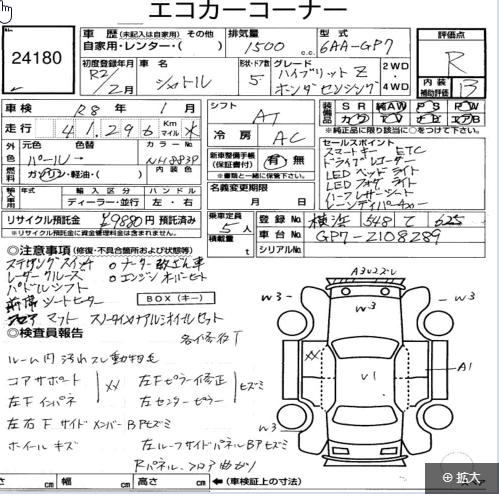 エコカーコーナー
24180
車歴（未記入は自家用）その他
自家用・レンター・（ ）
排気量
1500 c.c.
型式
6AA-GP7
評価点
R
内装
補助評価
B
初度登録年月
R2/2月
車名
シャトル
形状・ドア数
5
グレード
ハイブリット Z
ホンダセンシング
2WD
4WD
車検
R8年1月
シフト
AT
装備品
S R
純AW
P S
P W
カワ
T V
エアB
※純正品に限り該当に○をつけて下さい。
走行
41,296
Km
マイル
冷房
AC
セールスポイント
スマートキー ETC
ドライブレコーダー
LEDヘッドライト
LEDフォグライト
ハーフレザーシート
外色
元色
色替
カラーNo.
パール→
NH883P
内装色
燃料
ガソリン・軽油・（ ）
新車整備手帳
（保証書付）
有・無
※書類と一緒に保管して下さい。
名義変更期限
月 日
輸入車用
輸入区分
ハンドル
ディーラー・並行
左・右
リサイクル預託金
¥9880円
預託済み
※リサイクル預託金に資金管理料金は含まれておりません。
乗車定員
5人
積載量
t
登録No.
横浜 548 て 625
車台No.
GP7-2108289
シリアルNo.
◎注意事項（修復・不具合箇所および状態等）
ステアリングスイッチ
レーダークルーズ
パドルシフト
シートヒーター
フロアマット
○メーター改ざん車
○エンジンオーバーヒート
BOX（キー）
◎検査員報告
ルーム内 汚れ スレ 動物毛
コアサポート
左Fインパネ
XX
左Fピラー修正
左センターピラー
ヒズミ
左右FサイドメンバーBPヒズミ
ホイールキズ
左ルーフサイドパネルBPヒズミ
Rパネル、フロア曲がり
A3U2スレ
W3
W3
W3
XX
V1
A1
W3
cm
幅
cm
高さ
cm
←（車検証上の寸法）
拡大